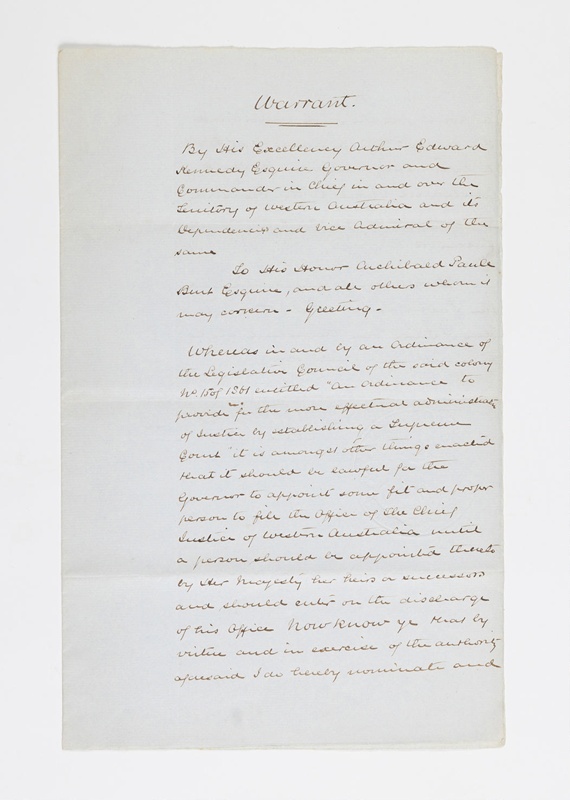 Warrant.
By His Excellency Arthur Edward
Kennedy Esquire Governor and
Commander in Chief in and over the
Territory of Western Australia and its
Dependencies and Vice Admiral of the
same
To His Honor Archibald Paull
Burt Esquire, and all others whom it
may concern - Greeting -
Whereas in and by an Ordinance of
the Legislative Council of the said colony
No. 15 of 1861 entitled "An Ordinance to
provide for the more effectual administration
of Justice by establishing a Supreme
Court" it is amongst other things enacted
that it should be lawful for the
Governor to appoint some fit and proper
person to fill the Office of the Chief
Justice of Western Australia until
a person should be appointed thereto
by Her Majesty her heirs or successors
and should enter on the discharge
of his Office Now know ye that by
virtue and in exercise of the authority
aforesaid I do hereby nominate and